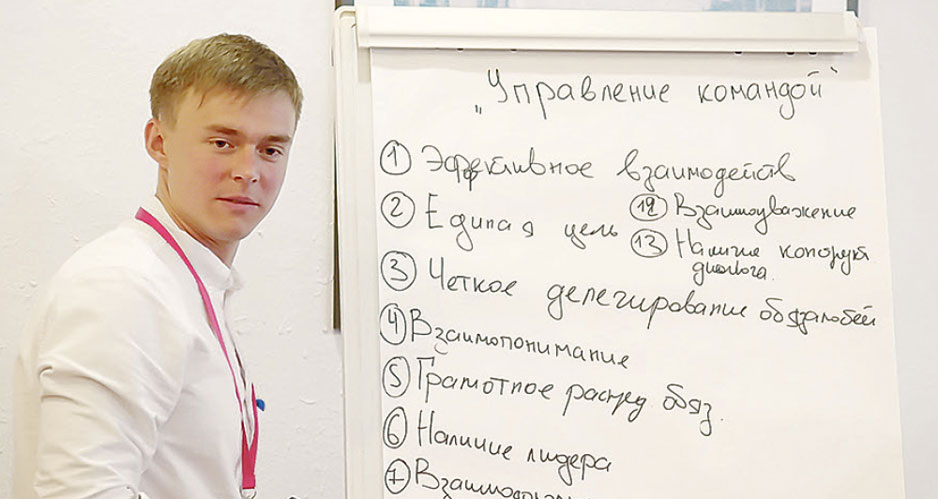 „Управление командой"
① Эффективное взаимодейств
② Единая цель
⑫ Взаимоуважение
⑬ Наличие
диалога.
③ Четкое делегирование
④ Взаимопонимание
⑤ Грамотное распред. обяз.
⑥ Наличие лидера
⑦